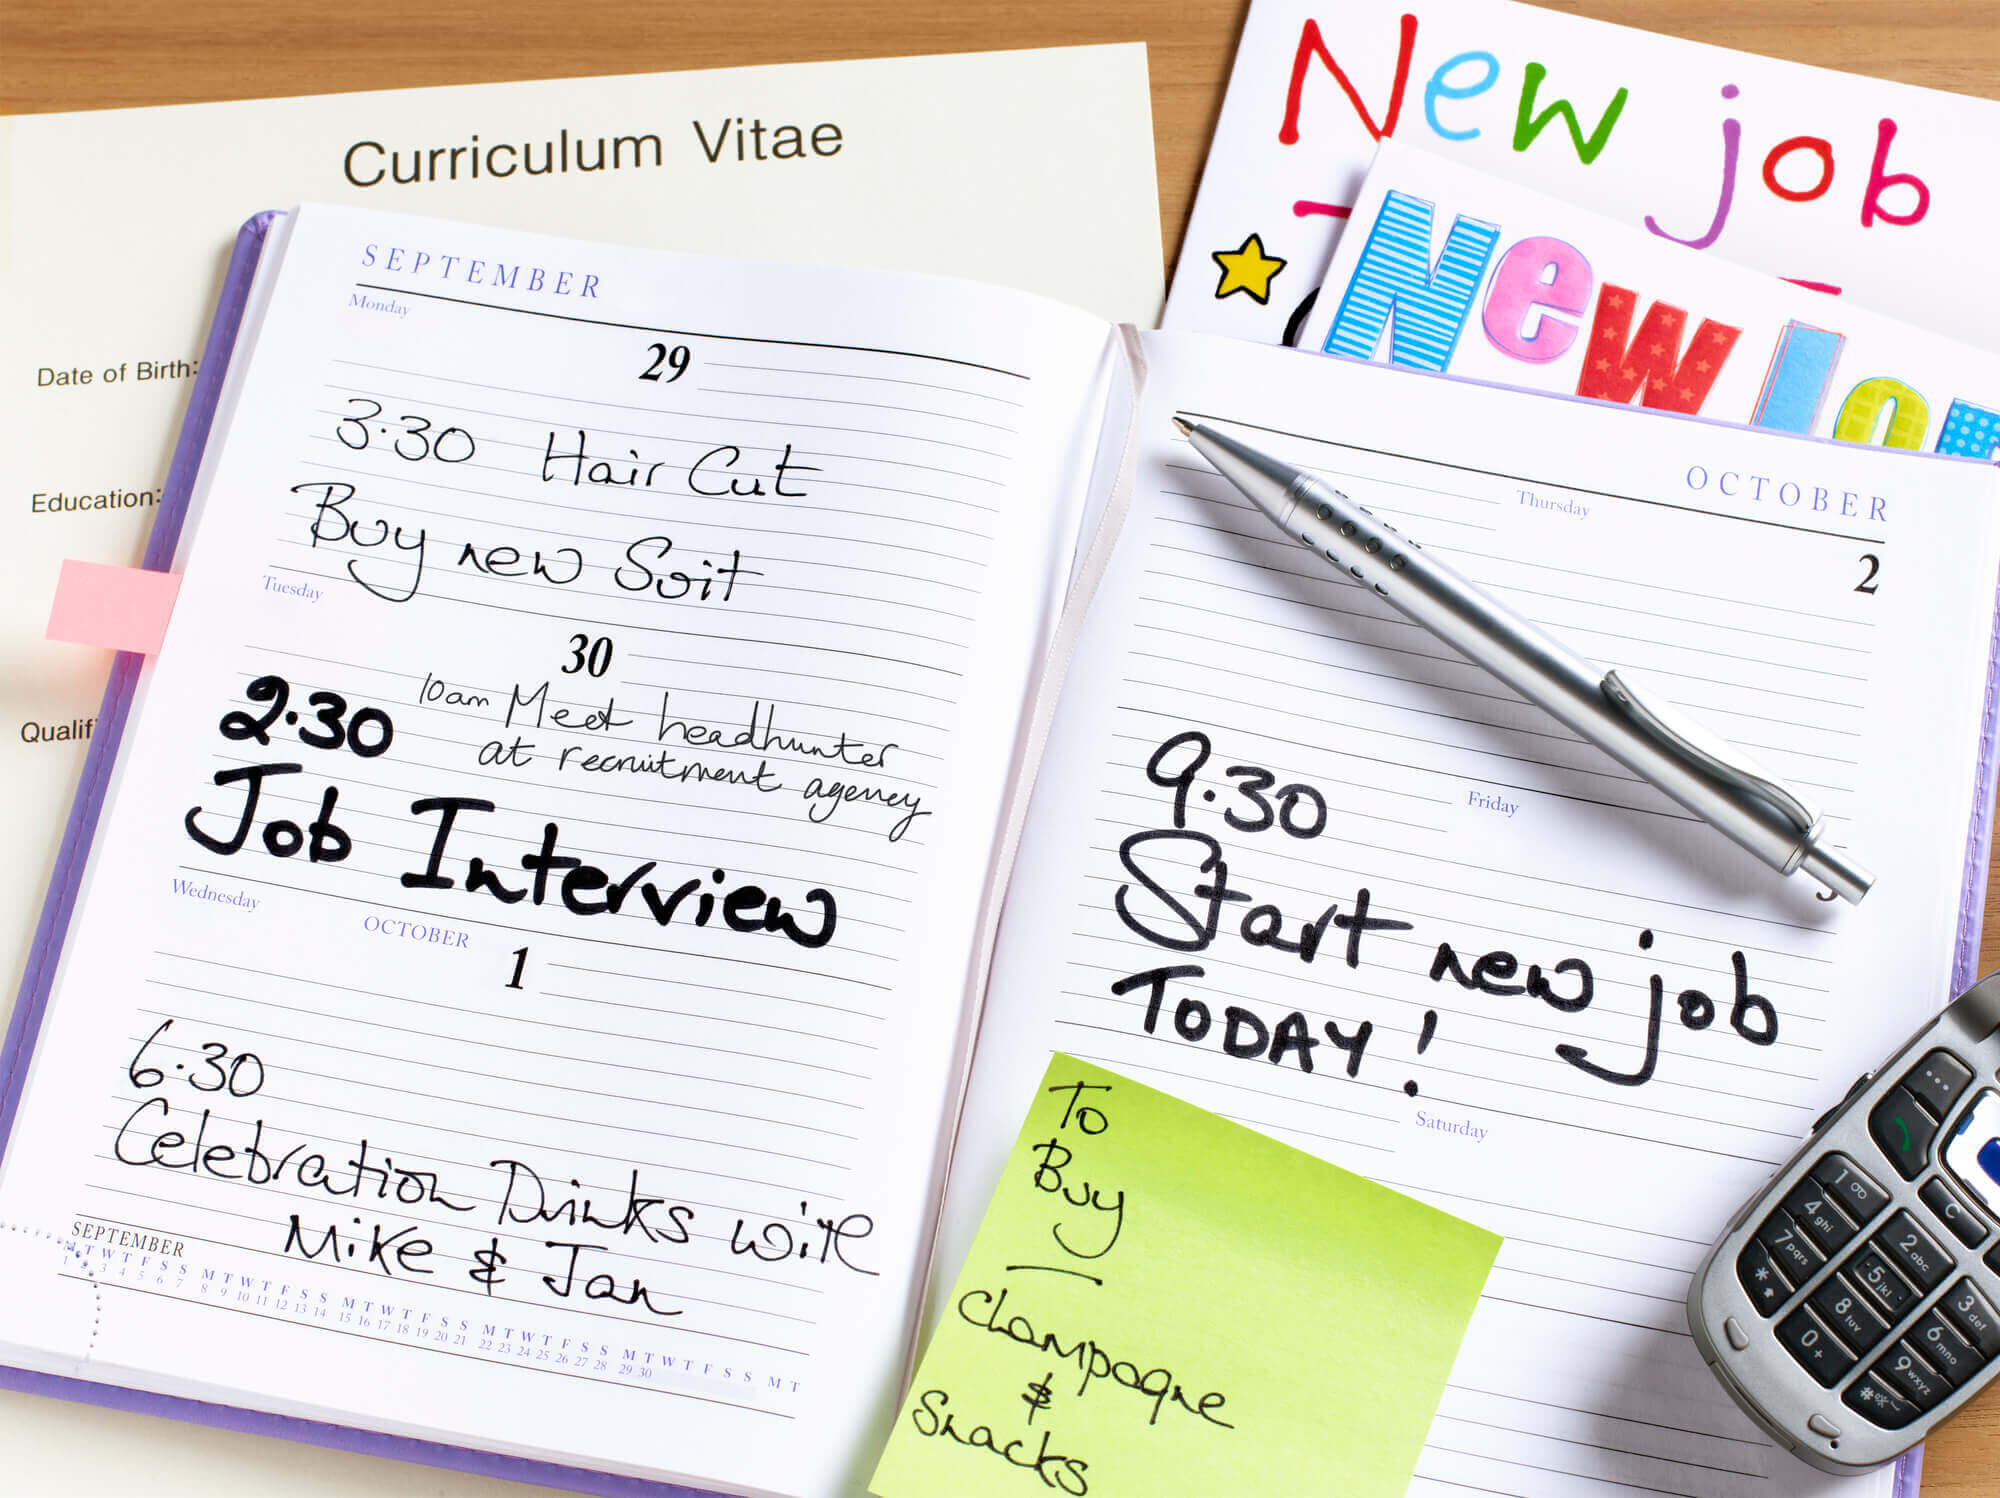 Curriculum Vitae
Date of Birth:
Education:
Qualifi
New job
New Jo
SEPTEMBER
Monday
29
3.30 Hair Cut
Buy new Suit
Tuesday
30
10am Meet headhunter
at recruitment agency
2.30
Job Interview
Wednesday
OCTOBER
1
6.30
Celebration Drinks with
Mike & Jan
SEPTEMBER
M T W T F S S M T W T F S S M T W T F S S M T W T F S S M T W T F S S M T
1 2 3 4 5 6 7 8 9 10 11 12 13 14 15 16 17 18 19 20 21 22 23 24 25 26 27 28 29 30
OCTOBER
Thursday
2
9.30
Friday
Start new job
TODAY!
Saturday
To
Buy
Champagne
&
Snacks
C
1
2abc
3def
4ghi
5jkl
6mno
7pqrs
8tuv
9wxyz
*
0+
#